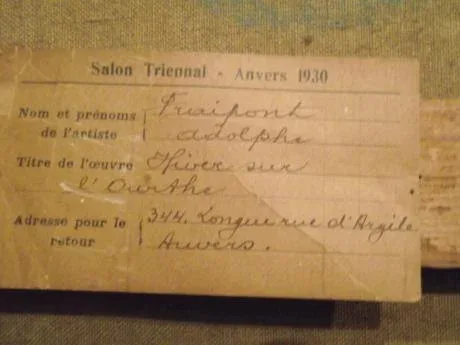 Salon Triennal - Anvers 1930
Nom et prénoms de l'artiste { Fraipont
Adolphe
Titre de l'œuvre Hiver sur
l'Ourthe
Adresse pour le retour { 344. Longue rue d'Argile
Anvers.